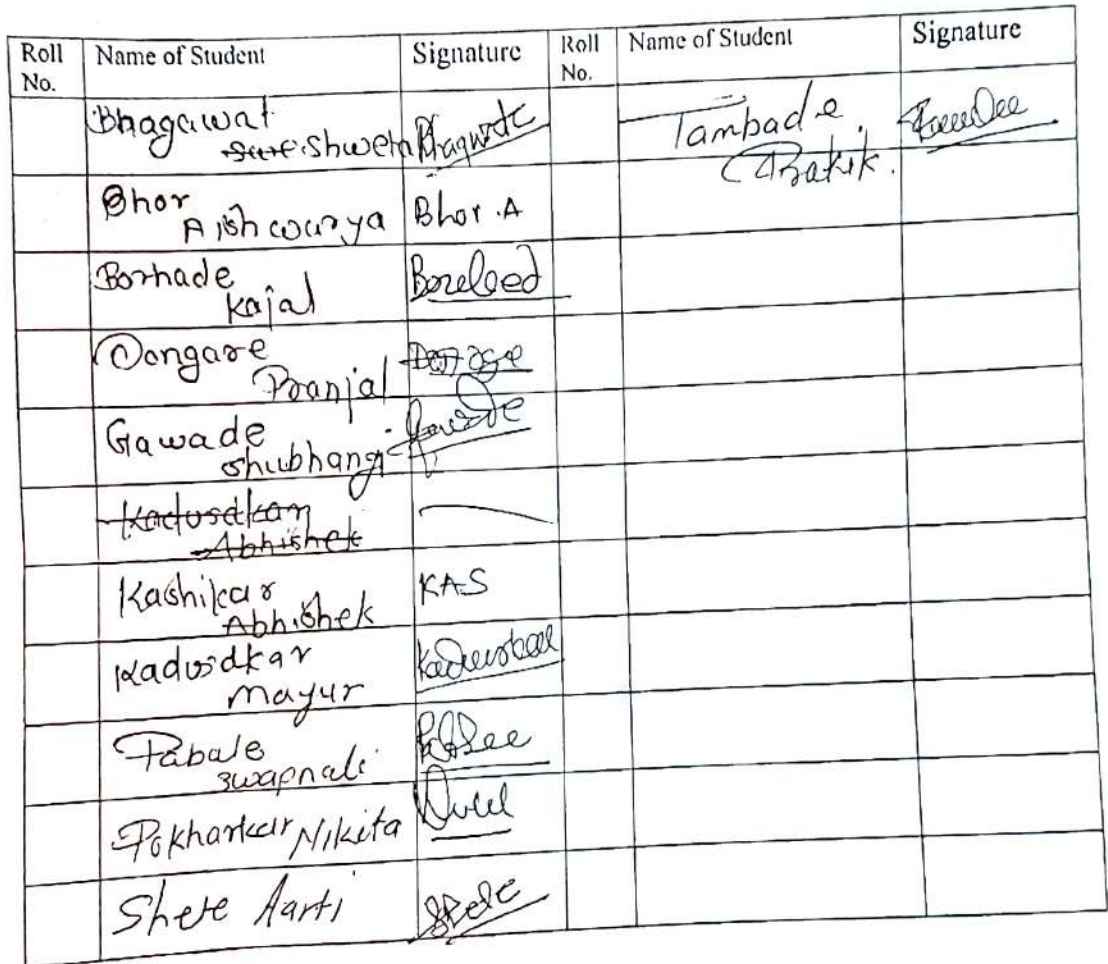 Roll No. Name of Student Signature Roll No. Name of Student Signature
Bhagawat
Shweta Bhagwat
Tambade
Pratik.
Bhor
Aishwarya Bhor .A
Borhade
Kajal
Dongare
Pranjal
Gawade
Shubhangi
Kadusdkar
Abhishek
Kashikar
Abhishek KAS
Kadusdkar
Mayur
Pabale
Swapnali
Pokharkar Nikita
Shete Aarti Shete